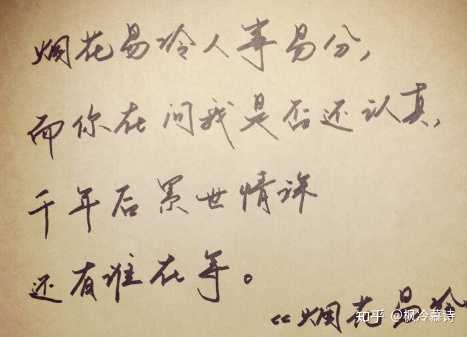 烟花易冷人事易分，
而你在问我是否还认真，
千年后累世情深
还有谁在等。
《烟花易冷
知乎 @枫冷慕诗